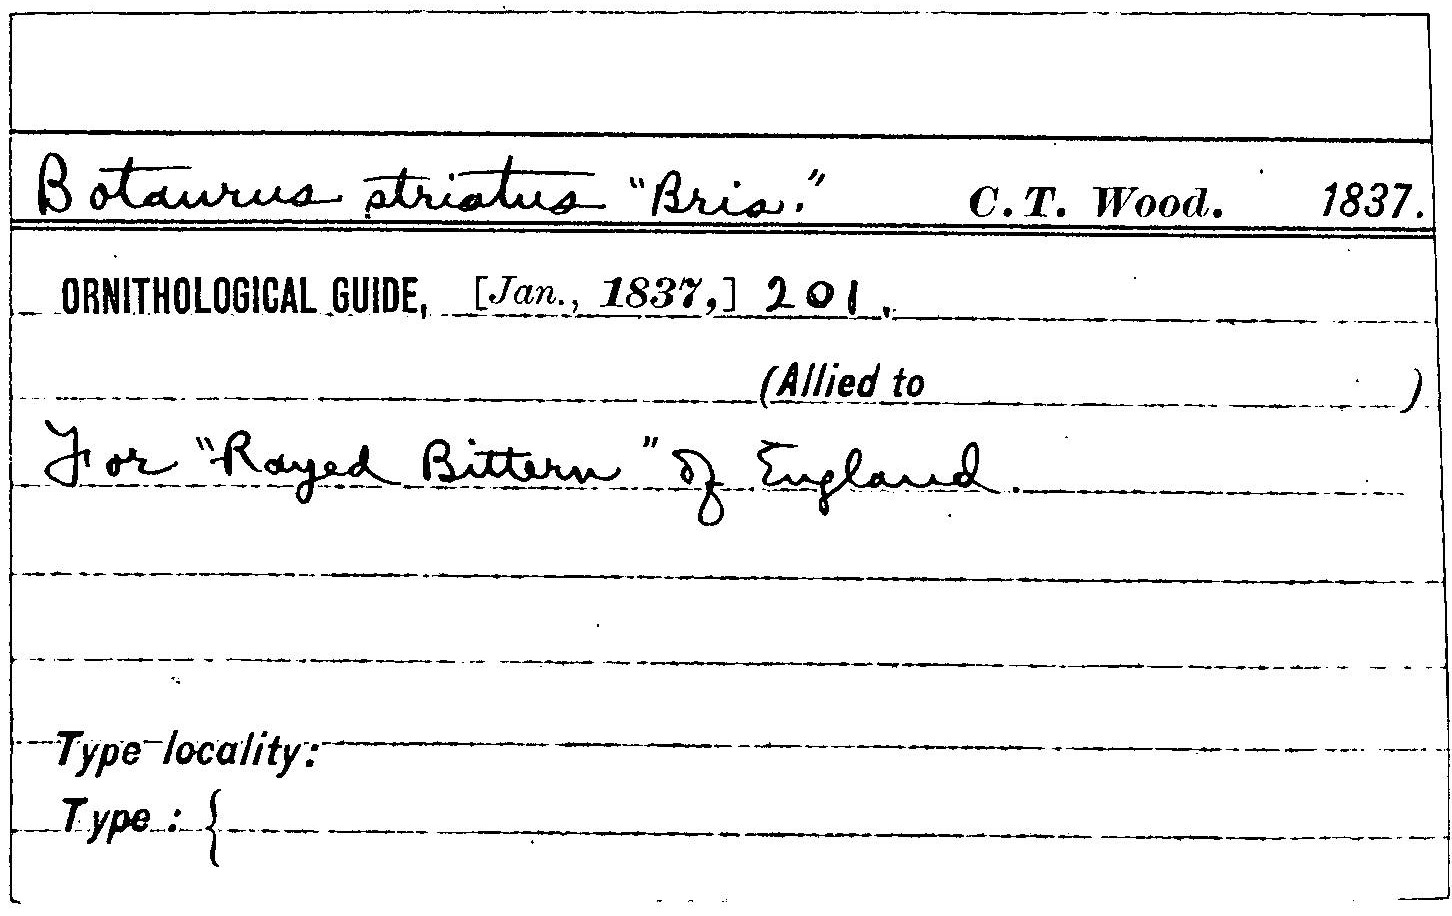 Botaurus striatus "Bris." C. T. Wood. 1837.
ORNITHOLOGICAL GUIDE, [Jan., 1837,] 201.
(Allied to )
For "Rayed Bittern" of England.
Type locality:
Type: {